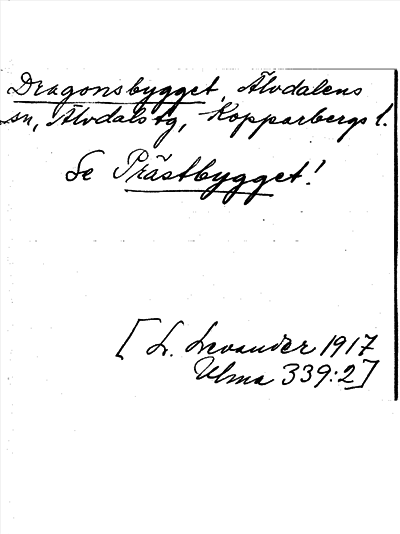 Dragonsbygget, Älvdalens
sn, Älvdals tg, Kopparbergs l.
Se Prästbygget!
[L. Levander 1917
Ulma 339:2]